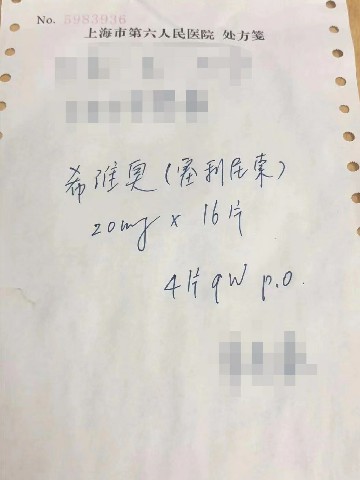 No. 5983936
上海市第六人民医院 处方笺
希维奥（塞利尼索）
20mg x 16片
4片 qW p.o.